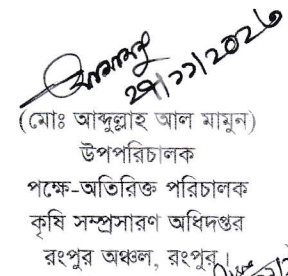 ২৭/১১/২০২৩
(মোঃ আব্দুল্লাহ আল মামুন)
উপপরিচালক
পক্ষে-অতিরিক্ত পরিচালক
কৃষি সম্প্রসারণ অধিদপ্তর
রংপুর অঞ্চল, রংপুর।